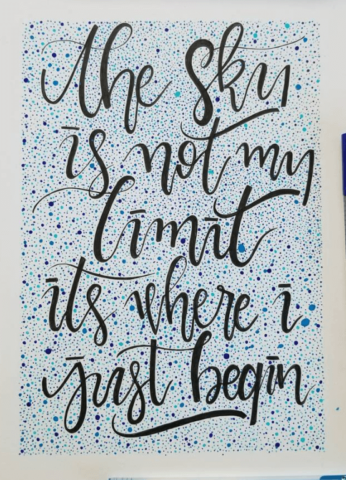 The sky
is not my
limit
its where i
just begin